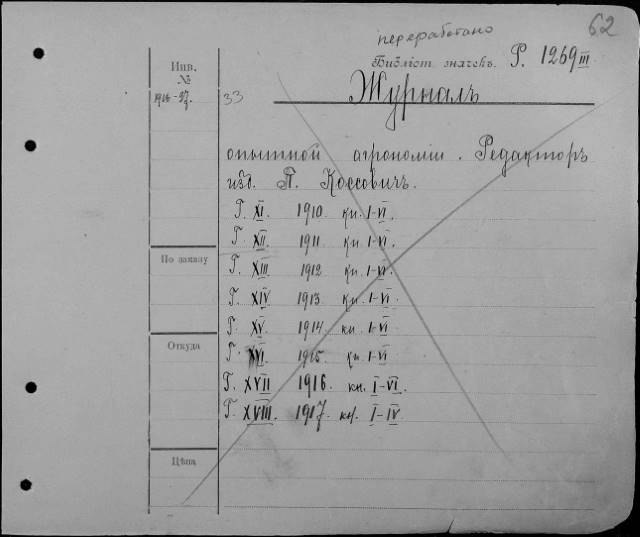 переработано
62
Библіот. значекъ. Р. 1269 III
Инв.
№
Журналъ
33
опытной агрономіи. Редакторъ
изд. П. Коссовичъ.
Г. XI. 1910 кн. I-VI.
Г. XII. 1911 кн. I-VI.
По заказу
Г. XIII 1912 кн. I-VI.
Г. XIV 1913 кн. I-VI.
Г. XV. 1914 кн. I-VI
Откуда
Г. XVI. 1915. кн. I-VI
Г. XVII 1916. кн. I-VI.
Г. XVIII. 1917 кн. I-IV.
Цѣна